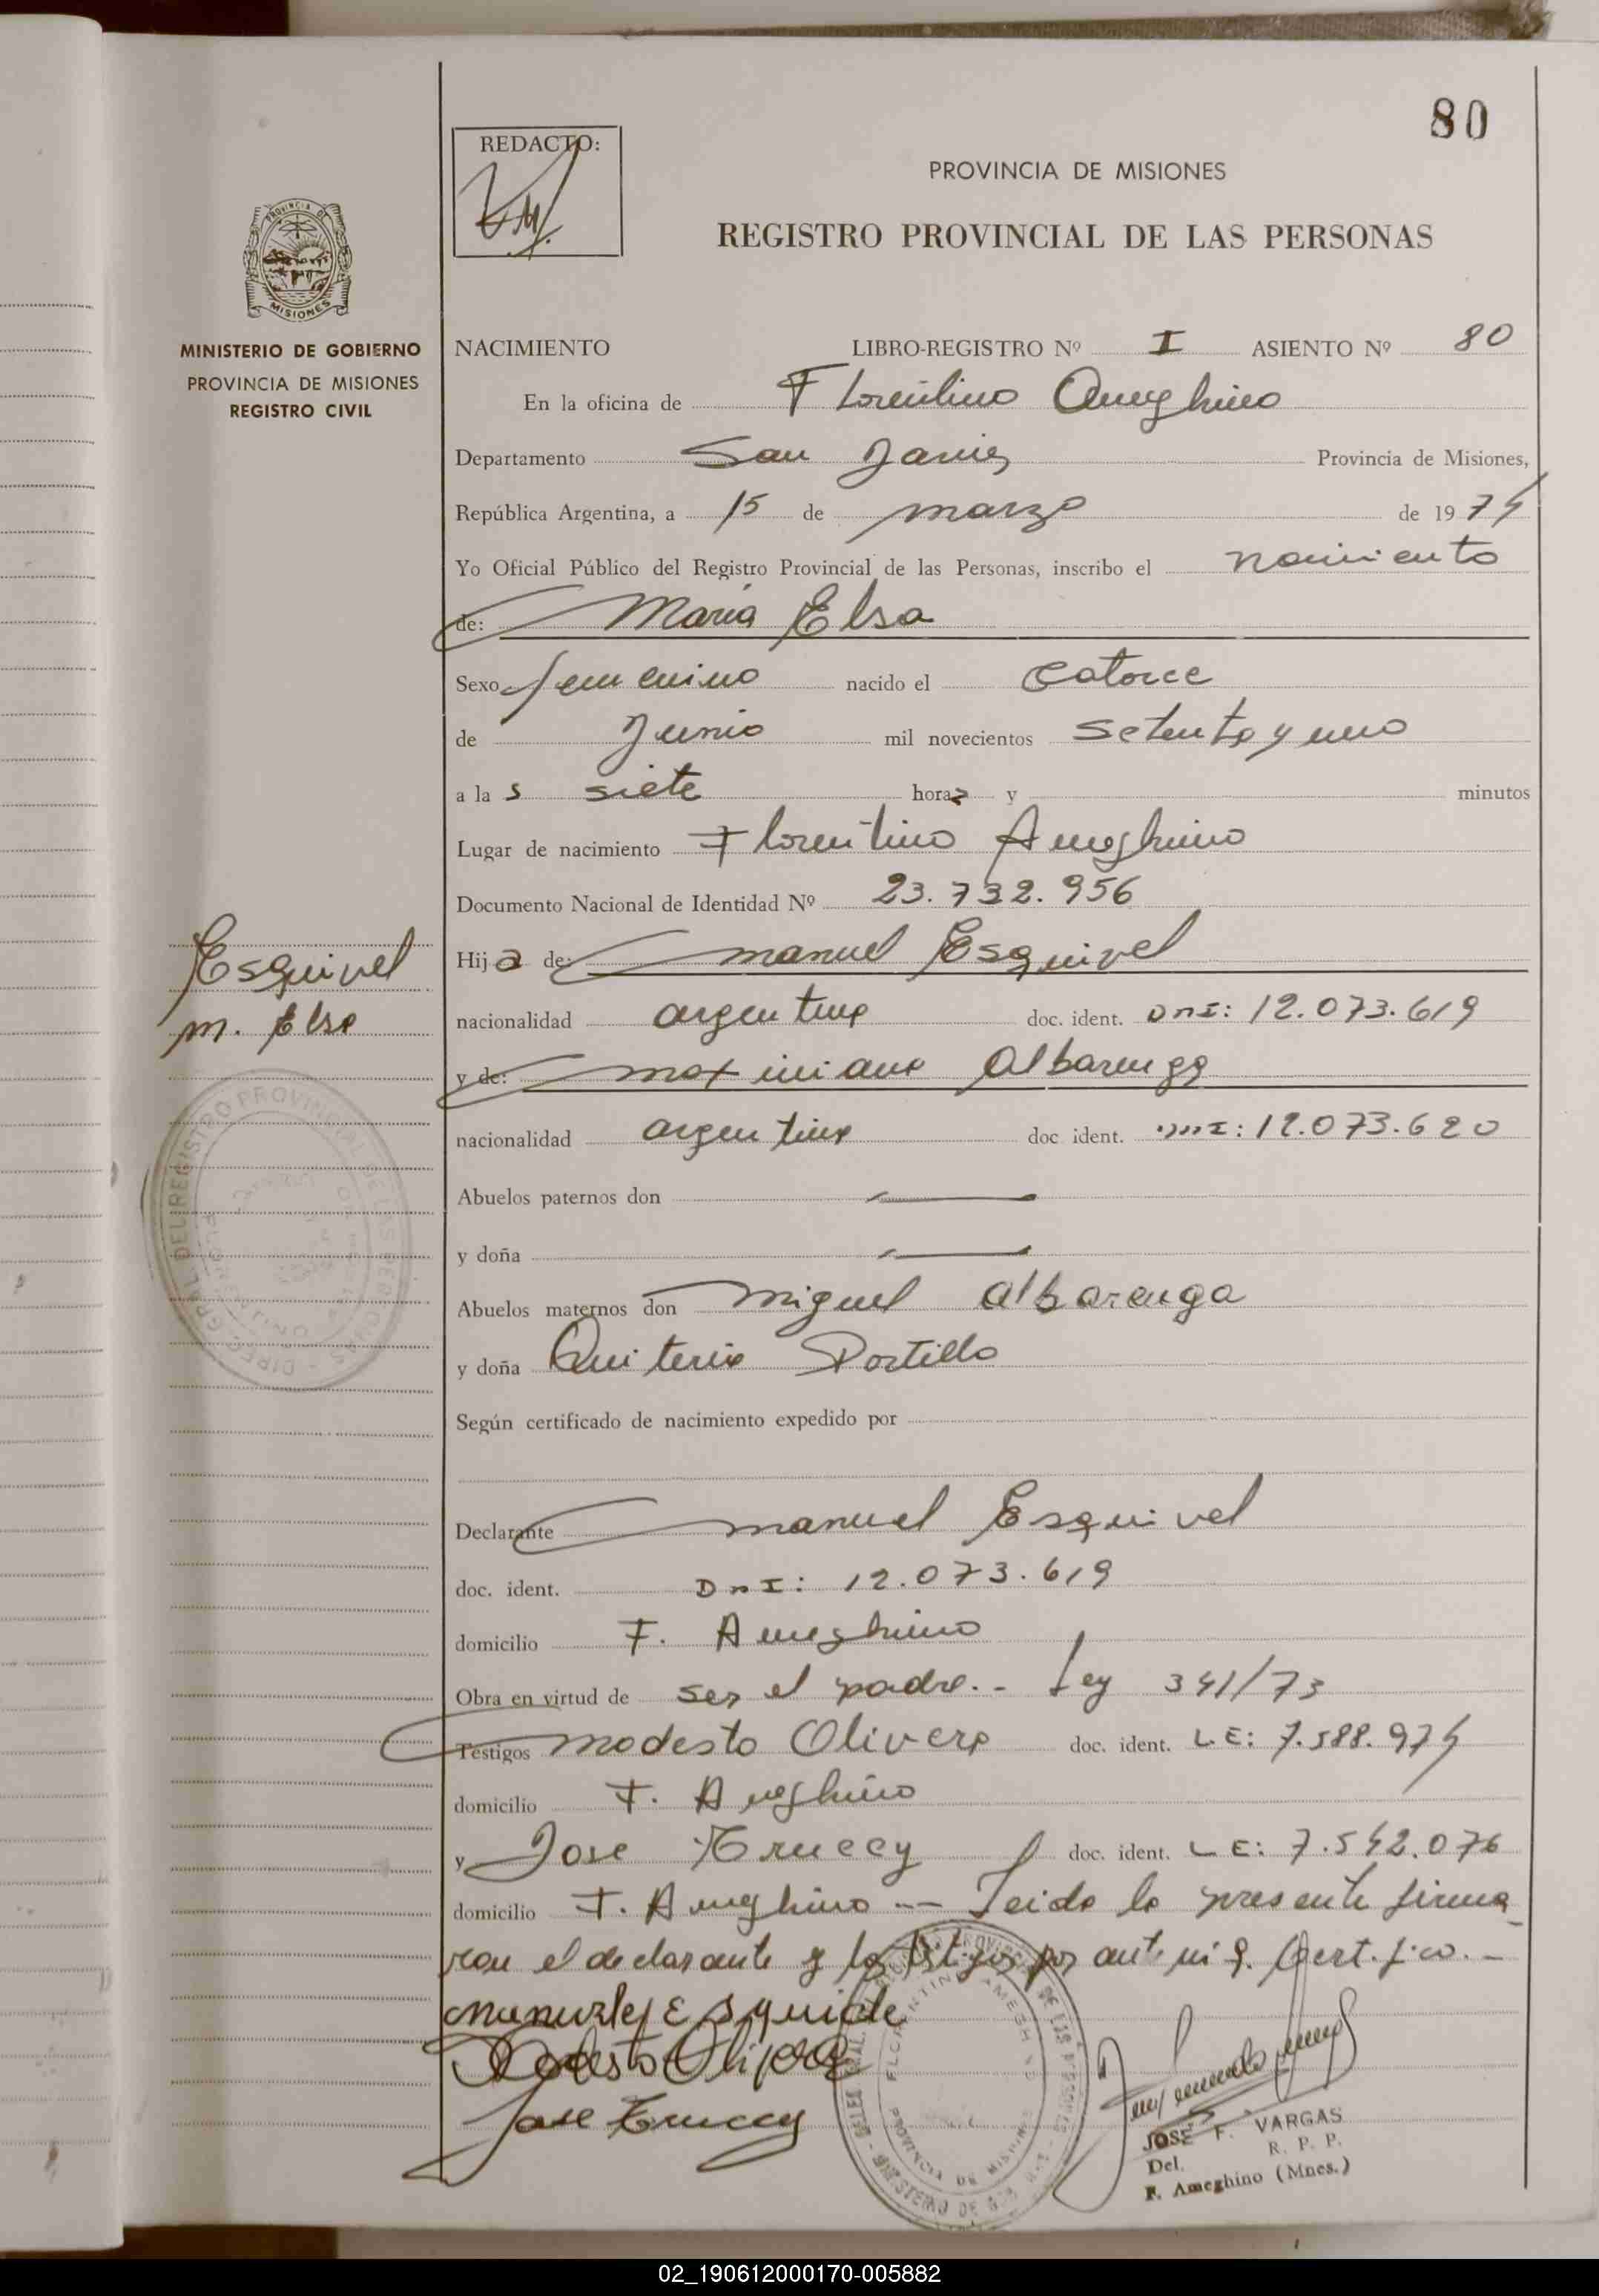 80
REDACTO:
PROVINCIA DE MISIONES
REGISTRO PROVINCIAL DE LAS PERSONAS
PROVINCIA DE
MISIONES
MINISTERIO DE GOBIERNO
PROVINCIA DE MISIONES
REGISTRO CIVIL
NACIMIENTO LIBRO-REGISTRO Nº I ASIENTO Nº 80
En la oficina de Florentino Ameghino
Departamento San Javier Provincia de Misiones,
República Argentina, a 15 de marzo de 1974
Yo Oficial Público del Registro Provincial de las Personas, inscribo el nacimiento
de: María Elsa
Sexo femenino nacido el Catorce
de Junio mil novecientos setenta y uno
a las siete horas y minutos
Lugar de nacimiento Florentino Ameghino
Documento Nacional de Identidad Nº 23.732.956
Esquivel
M. Elsa
Hija de: Manuel Esquivel
nacionalidad argentina doc. ident. DNI: 12.073.619
y de: Maximiana Albarenga
nacionalidad argentina doc. ident. DNI: 12.073.620
Abuelos paternos don
y doña
Abuelos maternos don Miguel Albarenga
y doña Quiteria Portillo
Según certificado de nacimiento expedido por
Declarante Manuel Esquivel
doc. ident. DNI: 12.073.619
domicilio F. Ameghino
Obra en virtud de ser el padre.- Ley 341/73
Testigos Modesto Olivera doc. ident. L.E: 7.588.974
domicilio F. Ameghino
y Jose Truccy doc. ident. L E: 7.542.076
domicilio F. Ameghino -- Leida la presente firma
ron el declarante y los testigos por ante mi q. Certifico.-
Modesto Olivera
Jose Truccy
JOSE F. VARGAS
Del. R. P. P.
F. Ameghino (Mnes.)
02_190612000170-005882